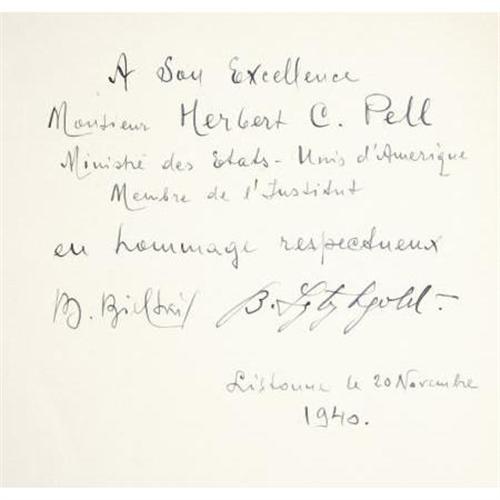 A Son Excellence
Monsieur Herbert C. Pell
Ministre des Etats-Unis d'Amerique
Membre de l'Institut
en hommage respectueux
B.
Lisbonne le 20 Novembre
1940.